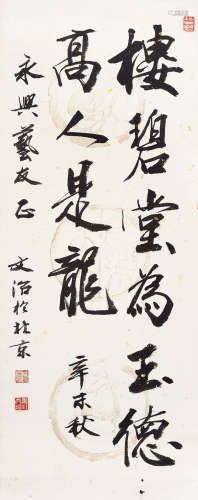 樓碧堂為玉德
高人是龍
辛未秋
永興藝友正
文治於北京